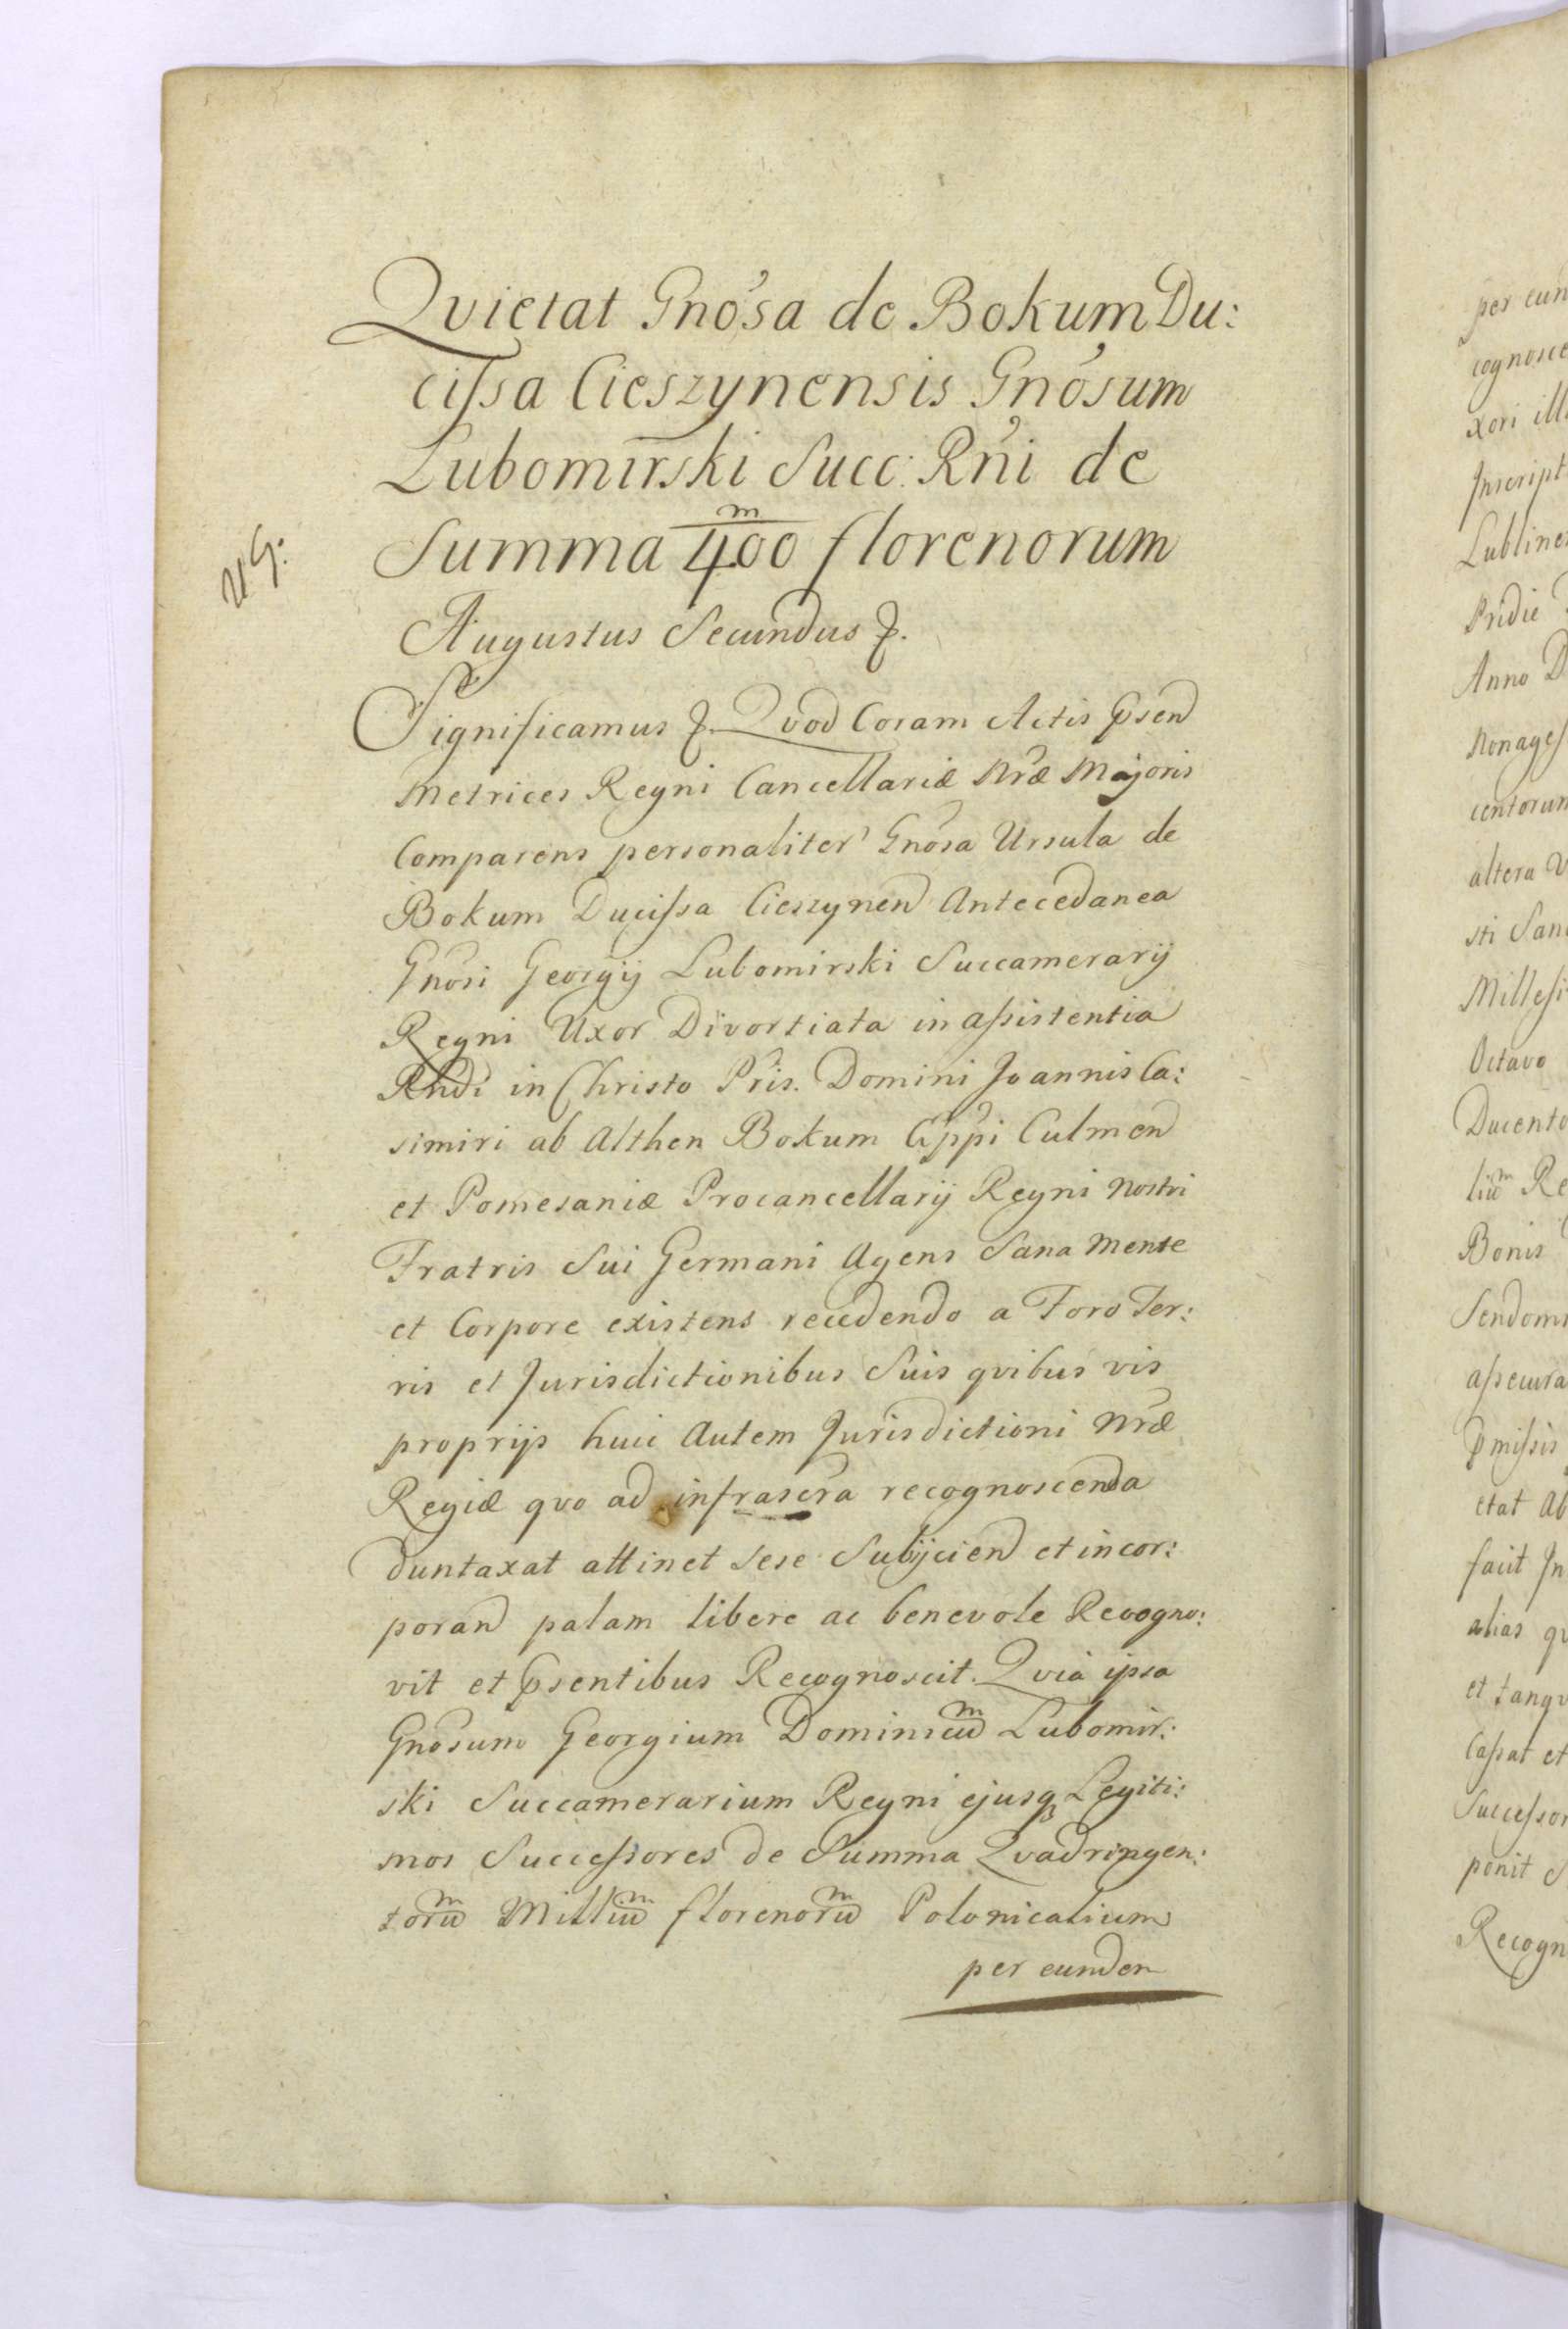 Qvietat Gnosa de Bokum Du:
cissa Cieszynensis Gnosum
Lubomirski Succ: Rni de
Summa 400 m florenorum
U G:
Augustus Secundus &.
Significamus &. Qvod Coram Actis Psend
Metrices Regni Cancellariæ Nræ Majoris
Comparens personaliter Gnosa Ursula de
Bokum Ducissa Cieszynen Antecedanea
Gnosi Georgij Lubomirski Succamerarij
Regni Uxor Divortiata in assistentia
Rndi in Christo Pris. Domini Joannis Ca:
simiri ab Althen Bokum Eppi Culmen
et Pomesaniæ Procancellarij Regni nostri
Fratris Sui Germani Agens Sana Mente
et Corpore existens recedendo a Foro Ter:
ris et Jurisdictionibus Suis qvibus vis
proprijs huic Autem Jurisdictioni Nræ
Regiæ qvo ad infrascra recognoscenda
duntaxat attinet sese Subijciend et incor:
porand palam libere ac benevole Recogno:
vit et Psentibus Recognoscit. Qvia ipsa
Gnosum Georgium Dominicum Lubomir:
ski Succamerarium Regni ejusq Legiti:
mos Successores de Summa Qvadringen:
torum Millium florenorum Polonicalium
per eundem
per eun
cognosce
xori ill
Inscript
Lubline
Pridie
Anno D
Nonages
centorum
altera V
sti San
Millesi
Octavo
Ducento
lium Re
Bonis
Sendomi
assecura
Pmissis
etat Ab
facit In
alias qv
et tanqv
Cassat et
Successor
ponit S
Recogn